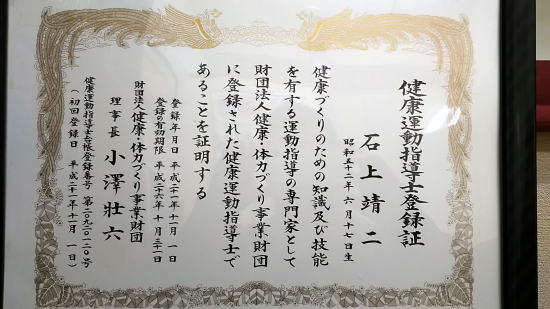 健康運動指導士登録証
石上靖二
昭和五十二年六月十七日生
健康づくりのための知識及び技能
を有する運動指導の専門家として
財団法人健康・体力づくり事業財団
に登録された健康運動指導士で
あることを証明する
登録年月日 平成二十一年十一月一日
登録の有効期限 平成二十六年十月三十一日
財団法人健康・体力づくり事業財団
理事長 小澤壯六
健康運動指導士台帳登録番号 第二〇九二〇一二〇号
(初回登録日 平成二十一年十一月一日)